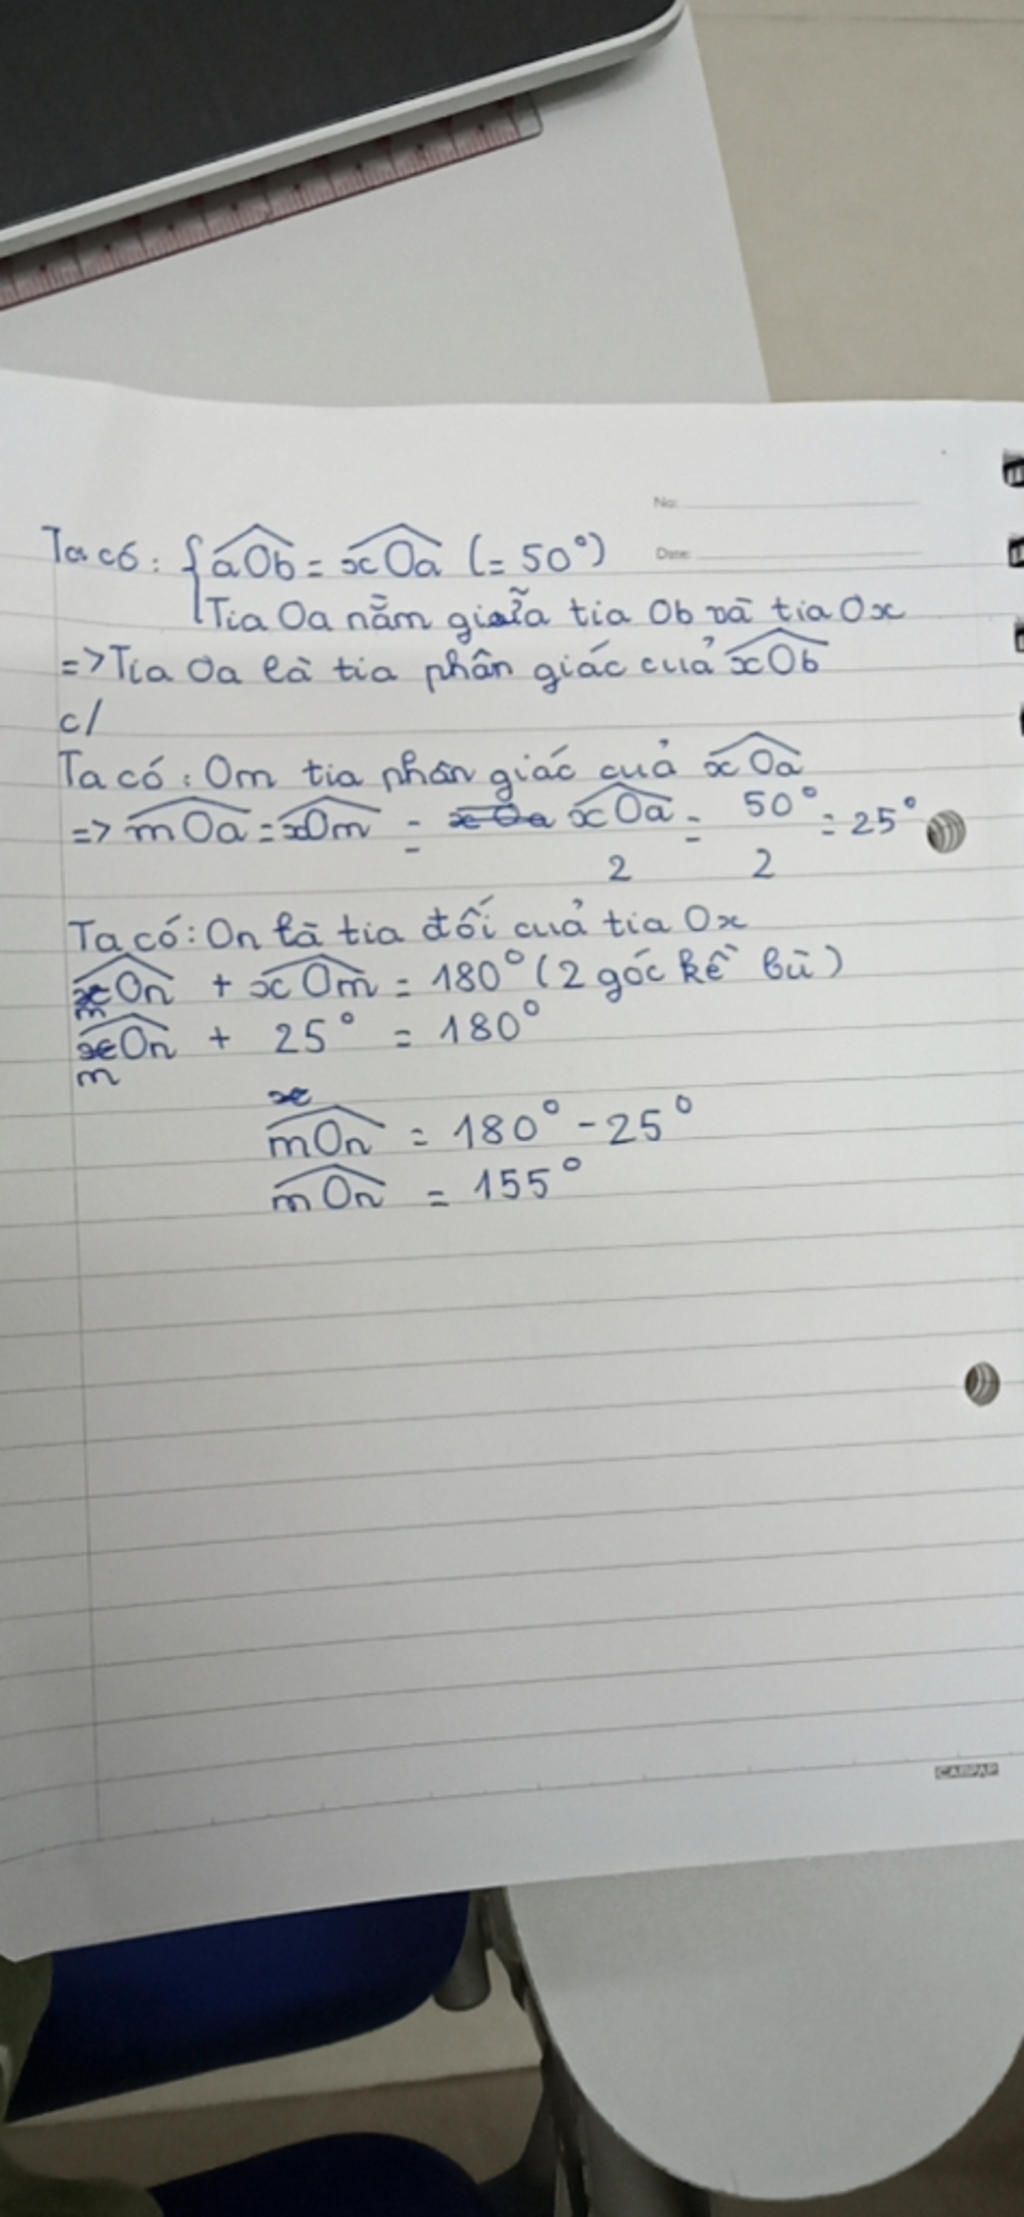 No:
Date:
Ta có: { aOb = xOa (= 50°)
Tia Oa nằm giữa tia Ob và tia Ox
=> Tia Oa là tia phân giác cuả xOb
c/
Ta có: Om tia phân giác cuả xOa
=> mOa = xOm = xOa / 2 = 50° / 2 = 25°
Ta có: On là tia đối cuả tia Ox
mOn + xOm = 180° (2 góc kề bù)
mOn + 25° = 180°
mOn = 180° - 25°
mOn = 155°